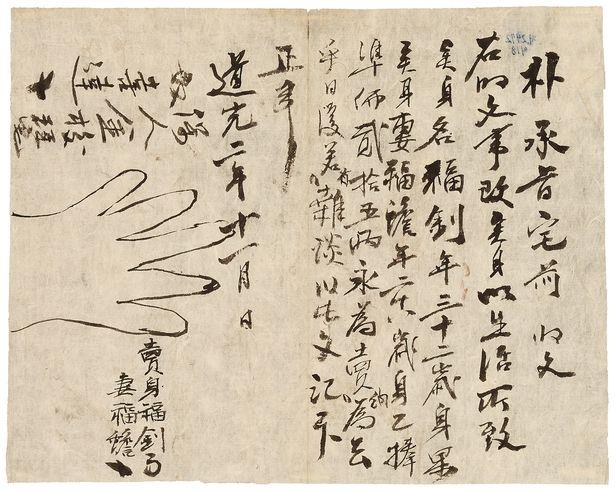 朴承旨宅前明文
右明文事段矣身以生活所致
矣身名福釗年三十二歲身果
矣身妻福蟾年六歲身乙捧
準価貳拾五兩永為賣納為去
乎日後若有雜談以此文記卞
正事
道光二年十一月日
證人金
筆
賣身福釗
妻福蟾